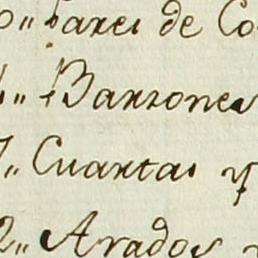 pares de Co
Barzones
Cuartas y
Arados